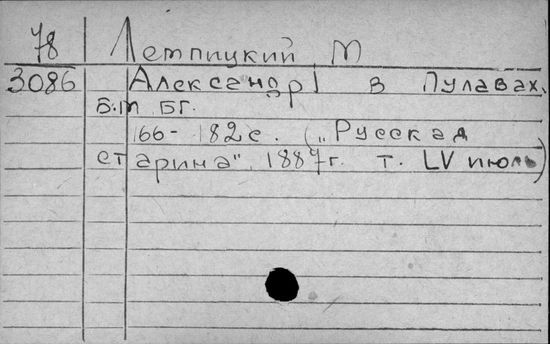 78 Лемпицкий М
3086 Александр I в Пулавах.
б.м бг.
166-182с. („Русская
старина", 1887г. т. LV июль)